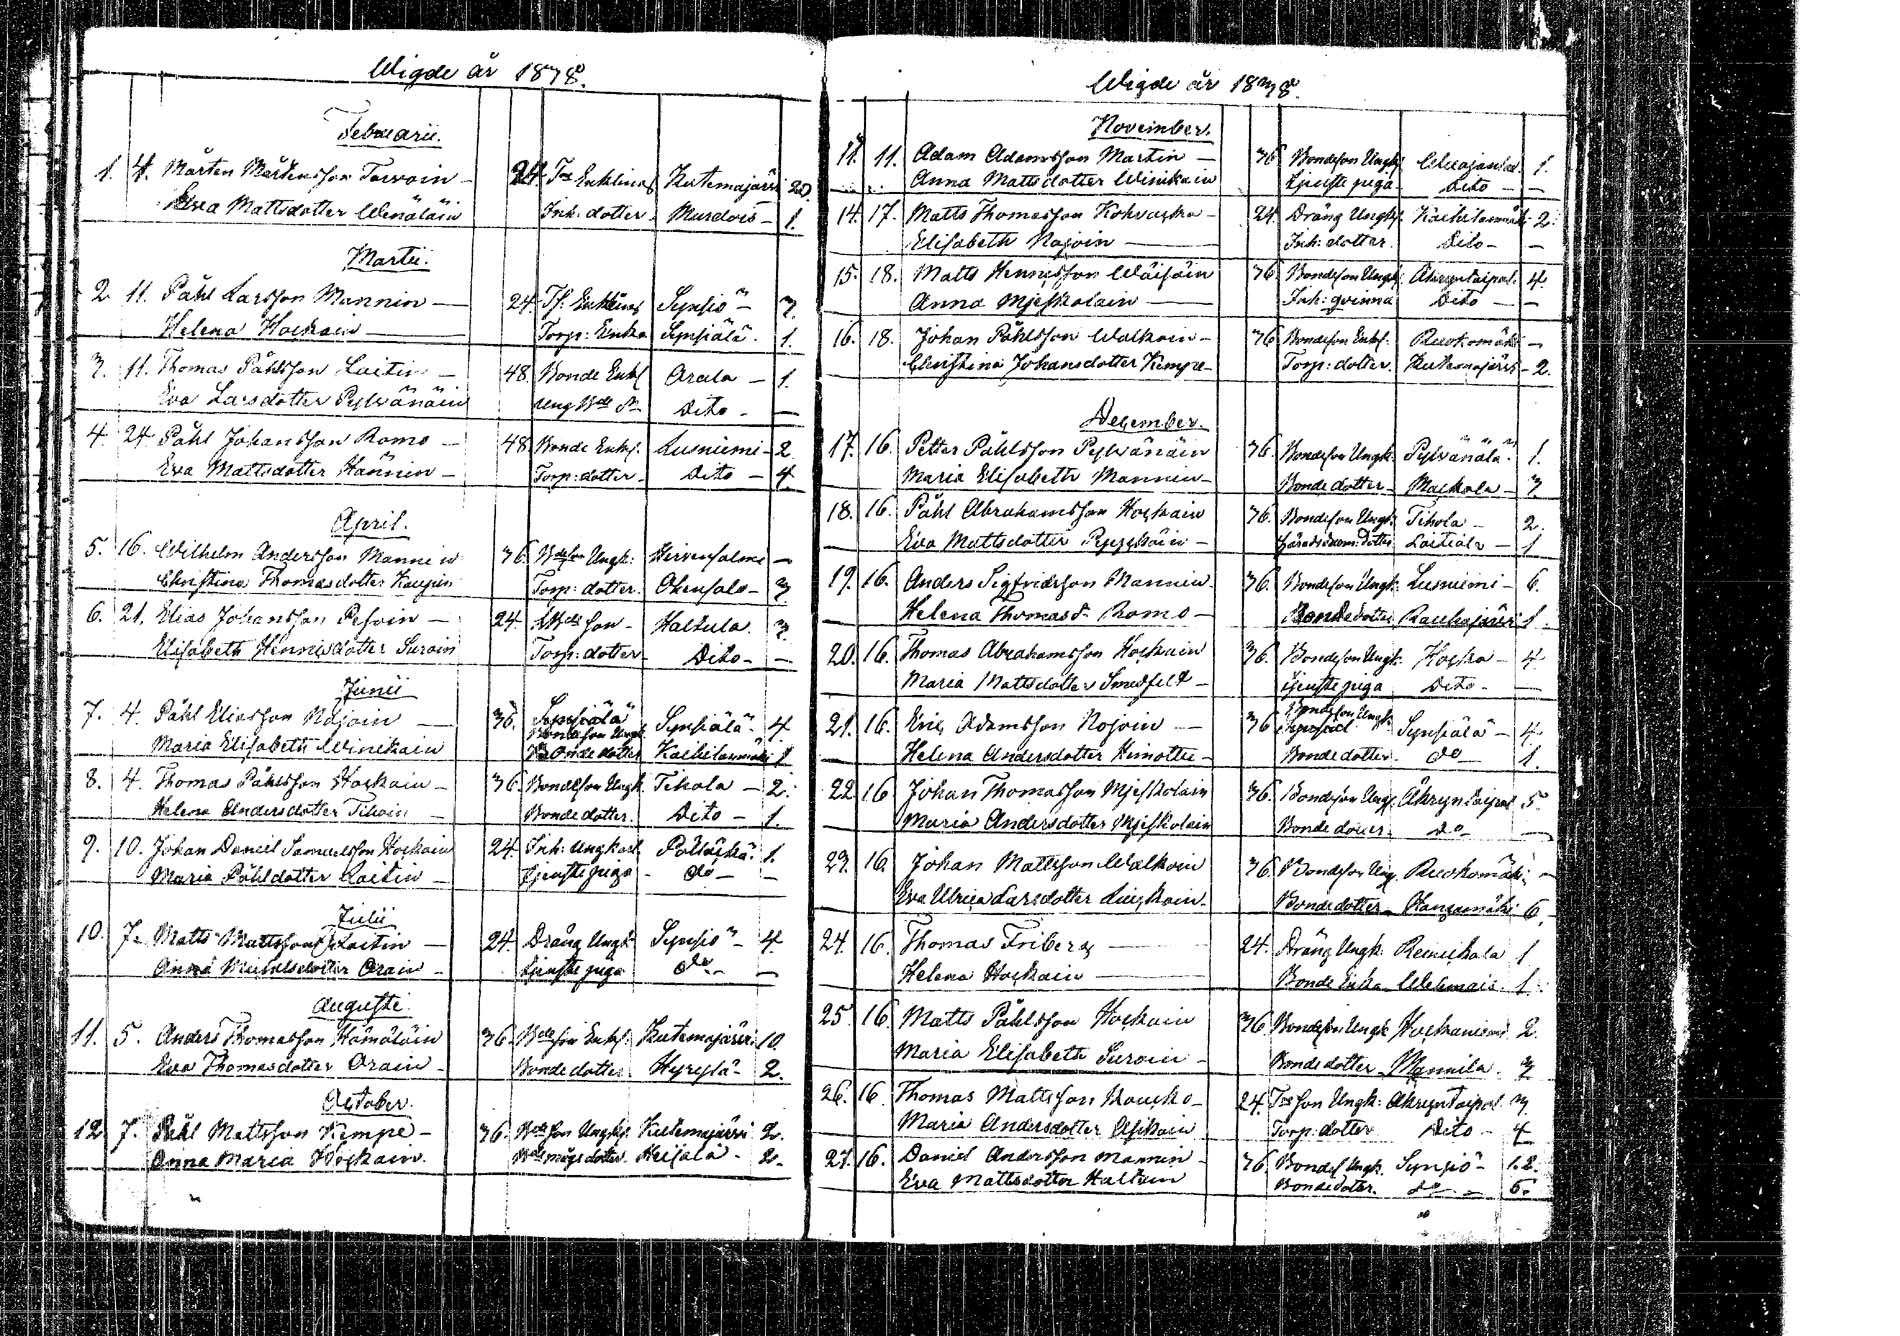 Wigde år 1838.
Februarii.
1. 4. Mårten Mårtensson Tarvoin — 24 Enklings Kutemajärvi 20.
Eva Mattsdotter Wenäläin Inh: dotter Murdois — 1.
Martii.
2 11. Påhl Larsson Mannin — 24. Enkling Synsiö — 3.
Helena Hoskain — Torp: Enka Synsiälä. 1.
3. 11. Thomas Påhlsson Laitin — 48. Bonde Enkl Arala — 1.
Eva Larsdotter Pylvänäin Dito — —
4. 24. Påhl Johansson Romo — 48. Bonde Enkl. Lusniemi — 2.
Eva Mattsdotter Hännin — Torp: dotter — Dito — 4.
April.
5. 16. Wilhelm Andersson Mannein 36. Bdeson Ungk: Hirvensalmi —
Christina Thomasdotter Kaupin Torp: dotter. Okensalo — 3.
6. 21. Elias Johansson Pesoin — 24. son — Hallula. 3.
Elisabeth Hennisdotter Suroin Torp: dotter — Dito — —
Junii
7. 4. Påhl Eliasson Nojoin — 36. Synsiälä Bondeson Ungk Synsiälä. 4
Maria Elisabeth Winikain Bondedotter Kaihilanmäki 1
8. 4. Thomas Påhlsson Hoskain — 36. Bondeson Ungk Tihola — 2.
Helena Andersdotter Tihoin — Bondedotter. Dito — 1.
9. 10. Johan Daniel Samuelsson Hoskain 24. Inh: Ungkarl 1.
Maria Påhldotter Laitin — Tjenste piga — do — —
Julii
10. 7. Matts Mattsson Laitin — 24. Dräng Ungk: Synsiö — 4.
Anna Michelsdotter Orain — Tjenste piga do — —
Augusti.
11. 5. Anders Thomasson Hämäläin 36. Bdeson Enkl. Kutemajärvi 10.
Eva Thomasdotter Orain — Bondedotter Hyrylä — 2.
October.
12 7. Påhl Mattsson Kempe — 36. Bdeson Ungk. Kutemajärvi 2.
Anna Maria Hoskain. mågs dotter. — 2.
Wigde år 1838.
November.
11. Adam Adamsson Martin — 36 Bondeson Ungk: 1.
Anna Mattsdotter Winikain Tjenste piga Dito — —
14. 17. Matts Thomasson Kohvaska — 24. Dräng Ungk. Kaihilanmäki 2.
Elisabeth Nojoin — Inh: dotter. Dito — —
15. 18. Matts Hennisson Wäisäin 36. Bondeson Ungk. 4
Anna Mjeskolain — Inh: qvinna Dito — —
16. 18. Johan Påhlsson Walkoin — 36 Bondeson Enkl. Ruokomäki —
Christina Johansdotter Kempe — Torp: dotter. Kutemajärvi — 2.
December.
17. 16. Petter Påhlsson Pylvänäin 36. Bondeson Ungk: Pylvänälä. 1.
Maria Elisabeth Mannin — Bondedotter — Maskola — 3
18. 16. Påhl Abrahamsson Hoskain 36. Bondeson Ungk: Tihola — 2.
Eva Mattsdotter — dotter Laitiala — 1
19. 16. Anders Sigfridsson Mannin — 36. Bondeson Ungk: Lusniemi — 6.
Helena Thomasd. Romo — Bondedotter Rauhajärvi 1.
20. 16. Thomas Abrahamsson Hoskain 36. Bondeson Ungk: Hoska — 4
Maria Mattsdotter Smedfelt — Tjenste piga Dito — —
21. 16. Eric Adamsson Nojoin — 36 Bondeson Ungk: Synsiälä — 4
Helena Andersdotter Himottu — Bondedotter. do — 1.
22. 16 Johan Thomasson Mjeskolain 36. Bondeson Ungk. 5.
Maria Andersdotter Mjeskolain Bondedotter. do —
23. 16 Johan Mattsson Walkoin 36. Bondeson Ung. Ruokomäki —
Eva Ulrica Larsdotter Liuskoin. Bondedotter — Kangasmäki 6.
24. 16. Thomas Friberg — 24. Dräng Ungk. 1
Helena Hoskain — Bonde Enka Wehmais. 1.
25. 16 Matts Påhlsson Hoskain 36 Bondeson Ungk Hoskaniemi 2.
Maria Elisabeth Suroin — Bondedotter — Mannila. 3
26. 16. Thomas Mattsson 24. Torpson Ungk: 3.
Maria Andersdotter Asikain Torp: dotter Dito — 4
27. 16. Daniel Andersson Mannin — 36. Bondes. Ungk. Synsiö — 12.
Eva Mattsdotter Haltuin Bondedoter. do — 5.